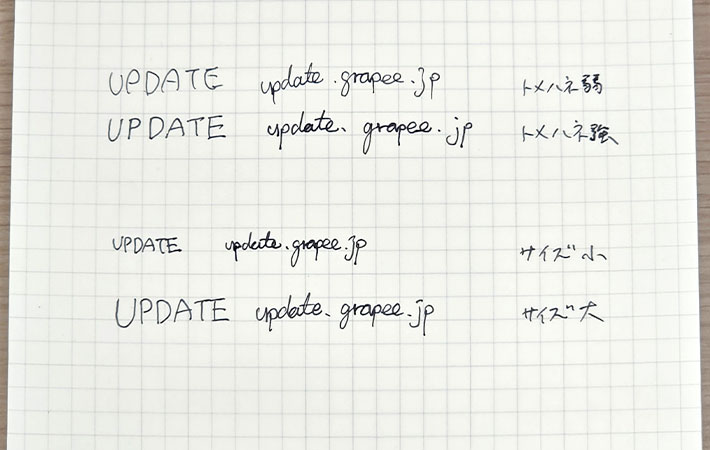 UPDATE update.grapee.jp トメハネ弱
UPDATE update.grapee.jp トメハネ強
UPDATE update.grapee.jp サイズ小
UPDATE update.grapee.jp サイズ大